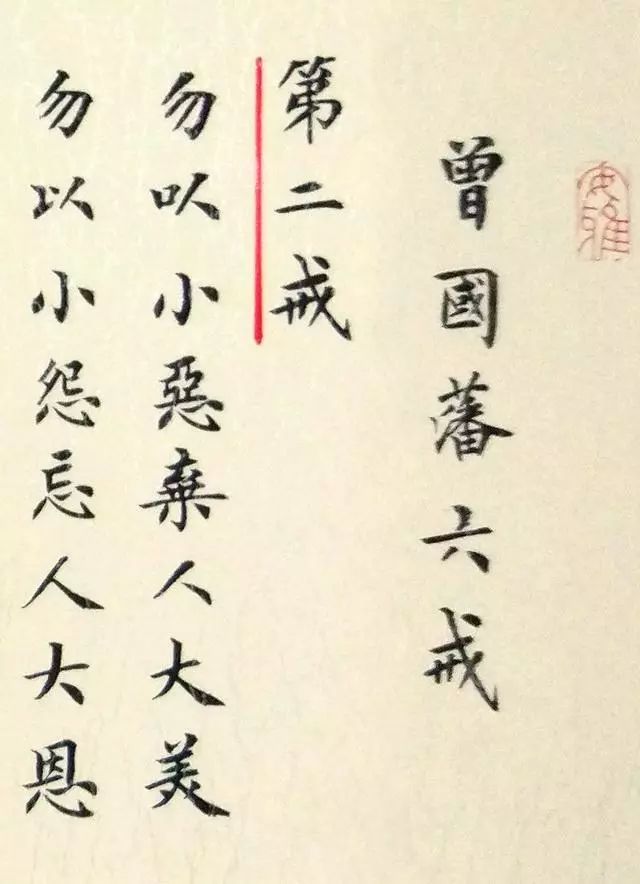 曾國藩六戒
第二戒
勿以小惡棄人大美
勿以小怨忘人大恩